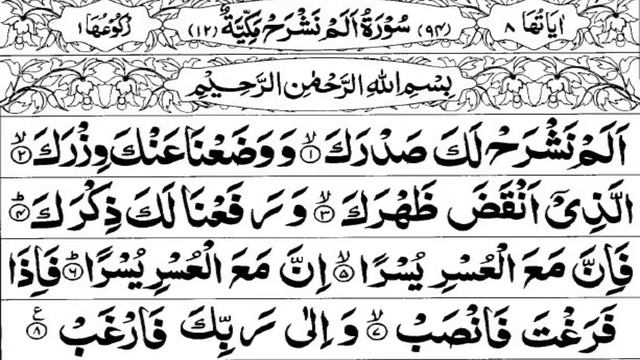 اٰيَاتُهَا ٨ (٩٤) سُوْرَةُ اَلَمْ نَشْرَحْ مَكِّيَّةٌ (١٢) رُكُوْعُهَا ١
بِسْمِ اللهِ الرَّحْمٰنِ الرَّحِيْمِ
اَلَمْ نَشْرَحْ لَكَ صَدْرَكَ ۙ﴿١﴾ وَوَضَعْنَا عَنْكَ وِزْرَكَ ۙ﴿٢﴾
الَّذِىْٓ اَنْقَضَ ظَهْرَكَ ۙ﴿٣﴾ وَرَفَعْنَا لَكَ ذِكْرَكَ ؕ﴿٤﴾
فَاِنَّ مَعَ الْعُسْرِ يُسْرًا ۙ﴿٥﴾ اِنَّ مَعَ الْعُسْرِ يُسْرًا ؕ﴿٦﴾ فَاِذَا
فَرَغْتَ فَانْصَبْ ۙ﴿٧﴾ وَاِلٰى رَبِّكَ فَارْغَبْ ﴿٨﴾ ع